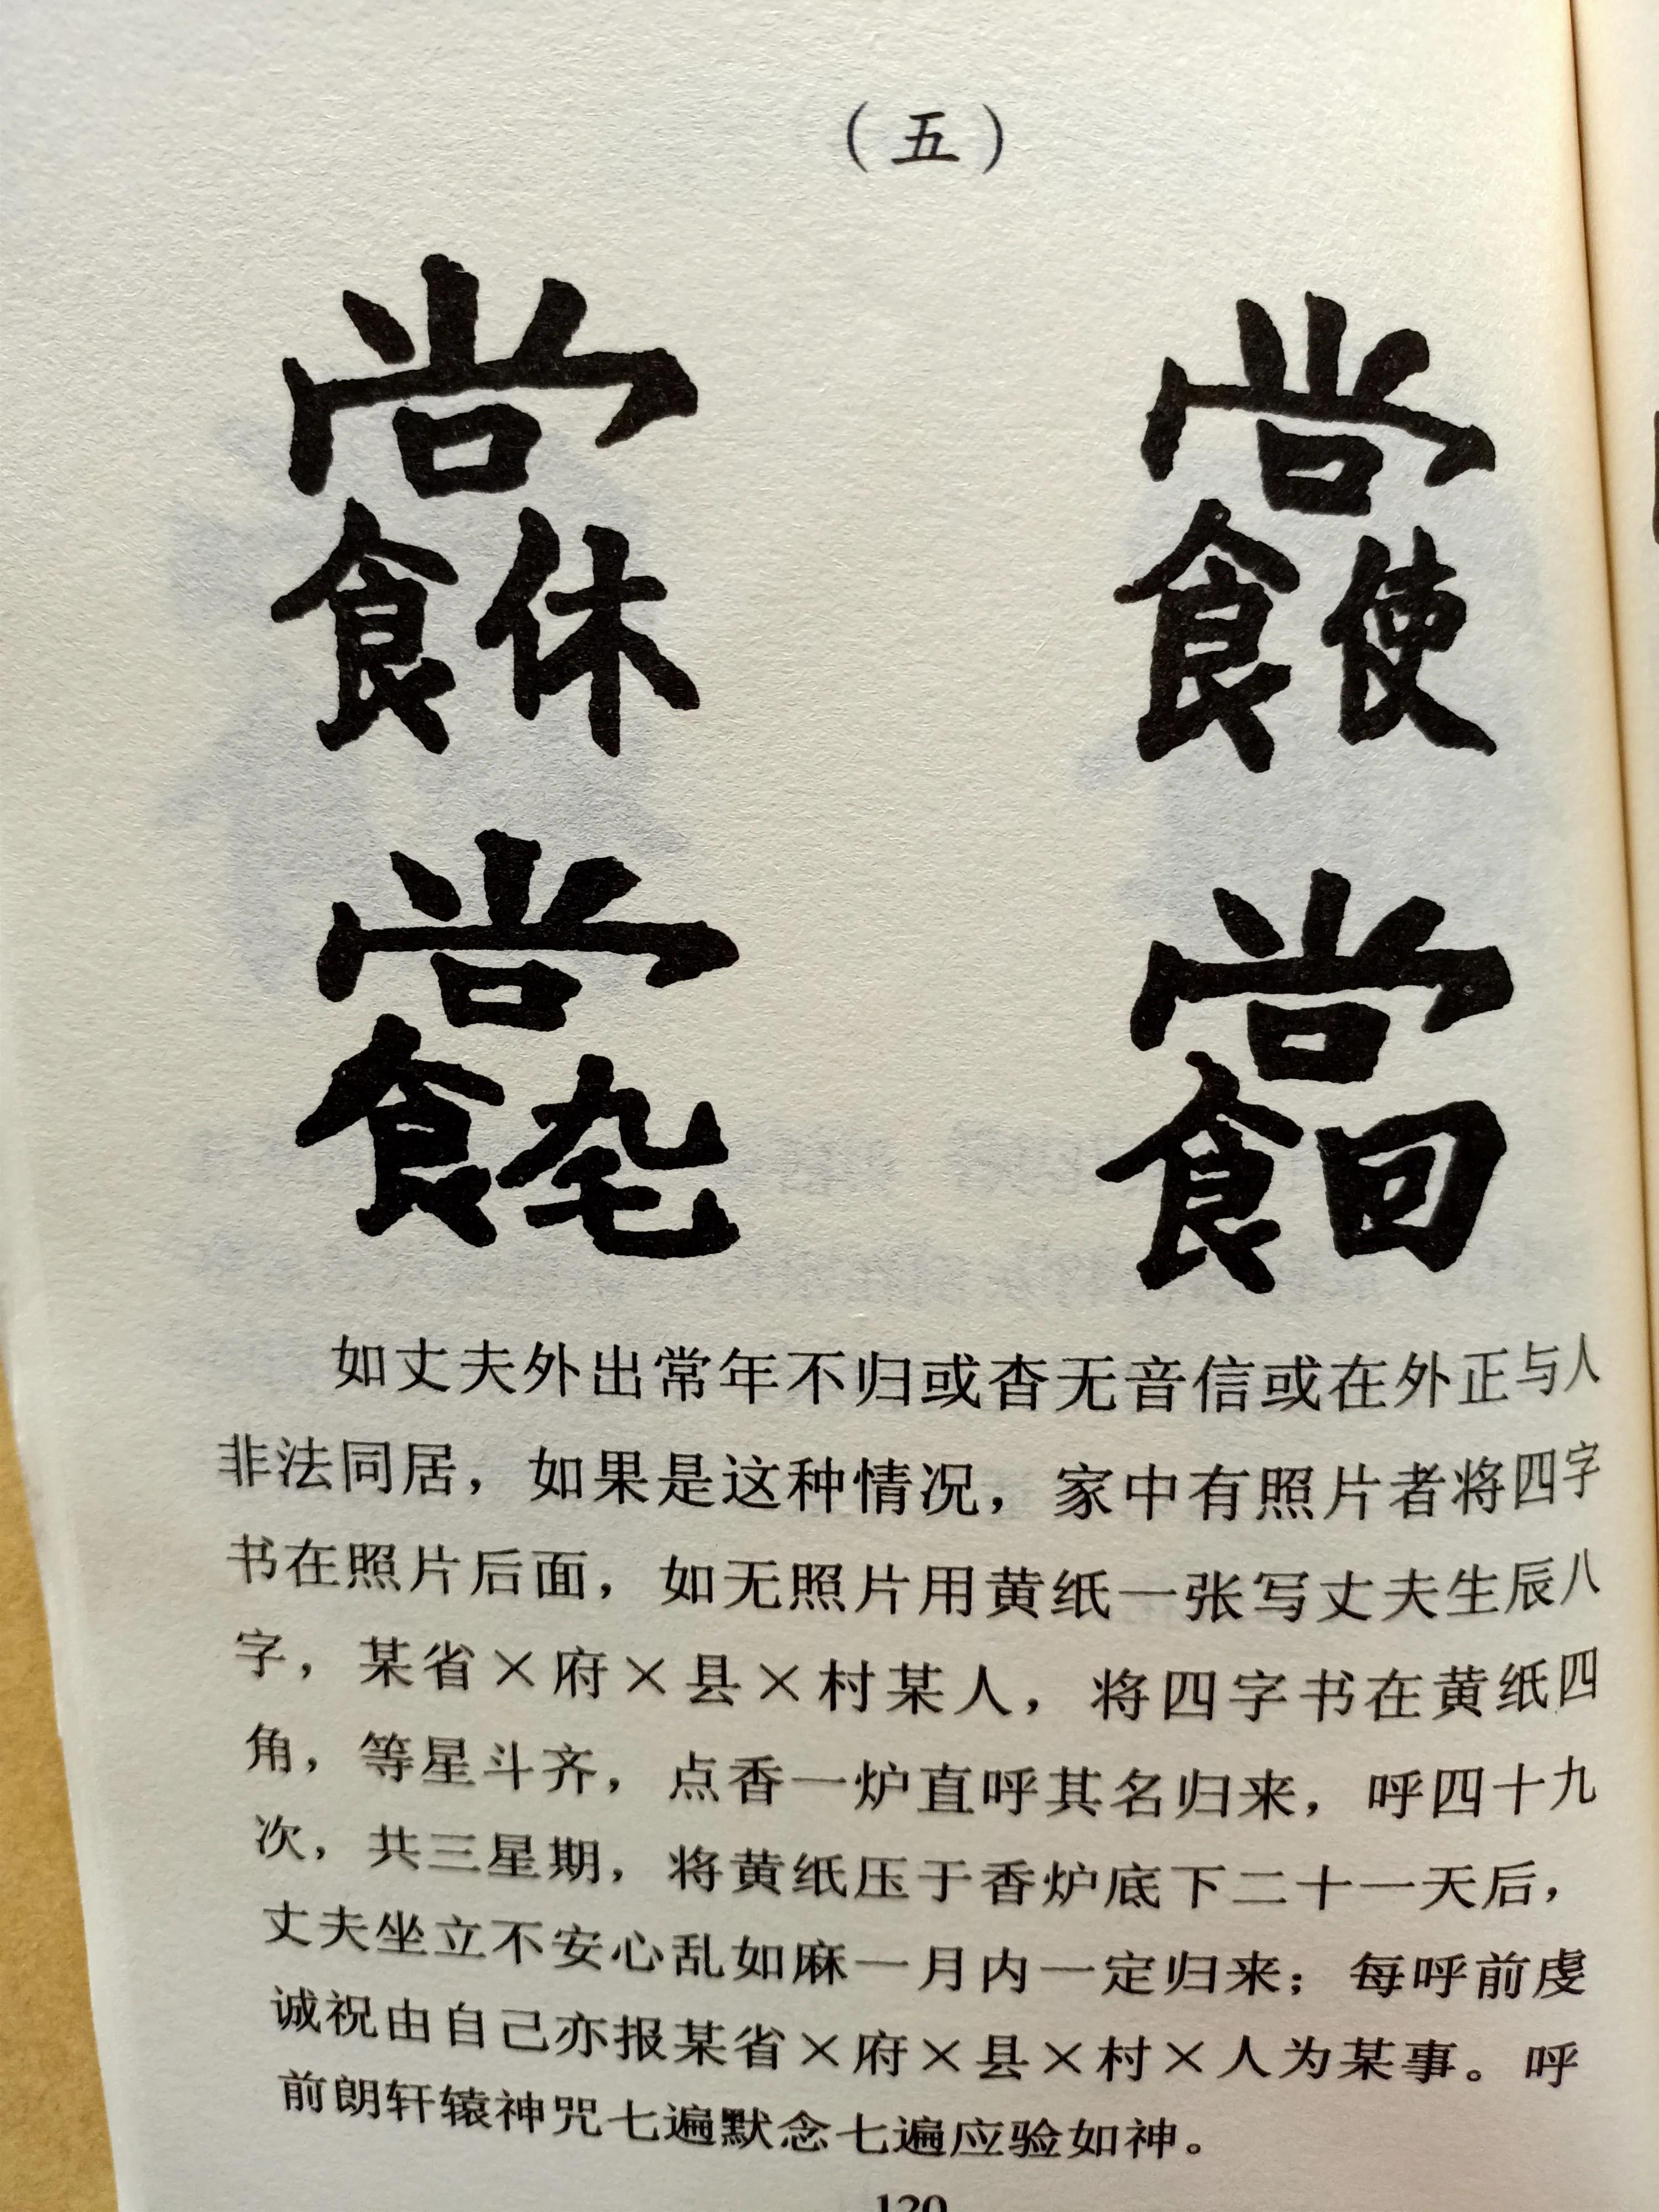 （五）
尚食休 尚食使
尚食 尚食回
如丈夫外出常年不归或杳无音信或在外正与人
非法同居，如果是这种情况，家中有照片者将四字
书在照片后面，如无照片用黄纸一张写丈夫生辰八
字，某省×府×县×村某人，将四字书在黄纸四
角，等星斗齐，点香一炉直呼其名归来，呼四十九
次，共三星期，将黄纸压于香炉底下二十一天后，
丈夫坐立不安心乱如麻一月内一定归来；每呼前虔
诚祝由自己亦报某省×府×县×村×人为某事。呼
前朗轩辕神咒七遍默念七遍应验如神。
120